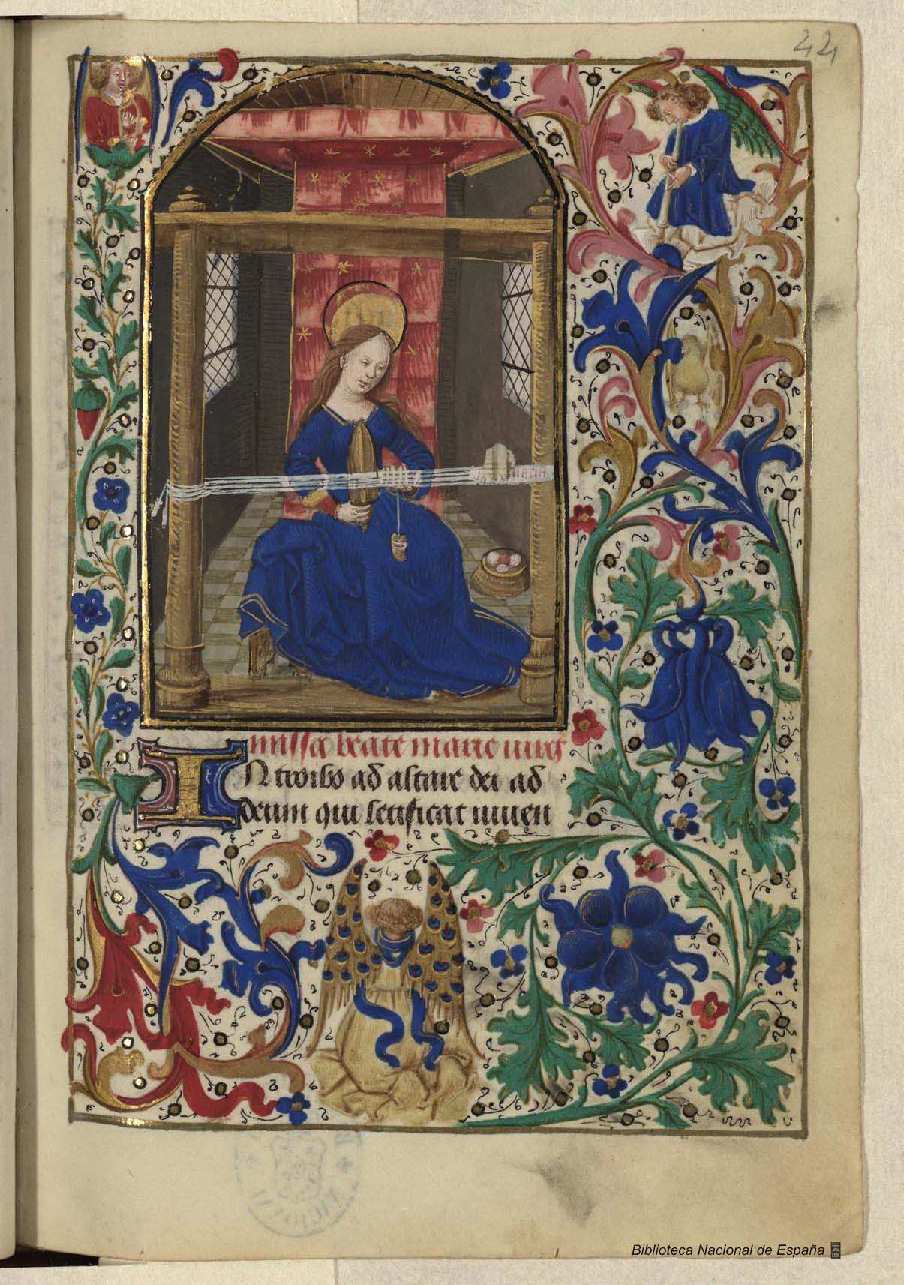 44
missa beate marie virgis
Introibo ad altare dei ad
deum qui letificat iuuen
Biblioteca Nacional de España